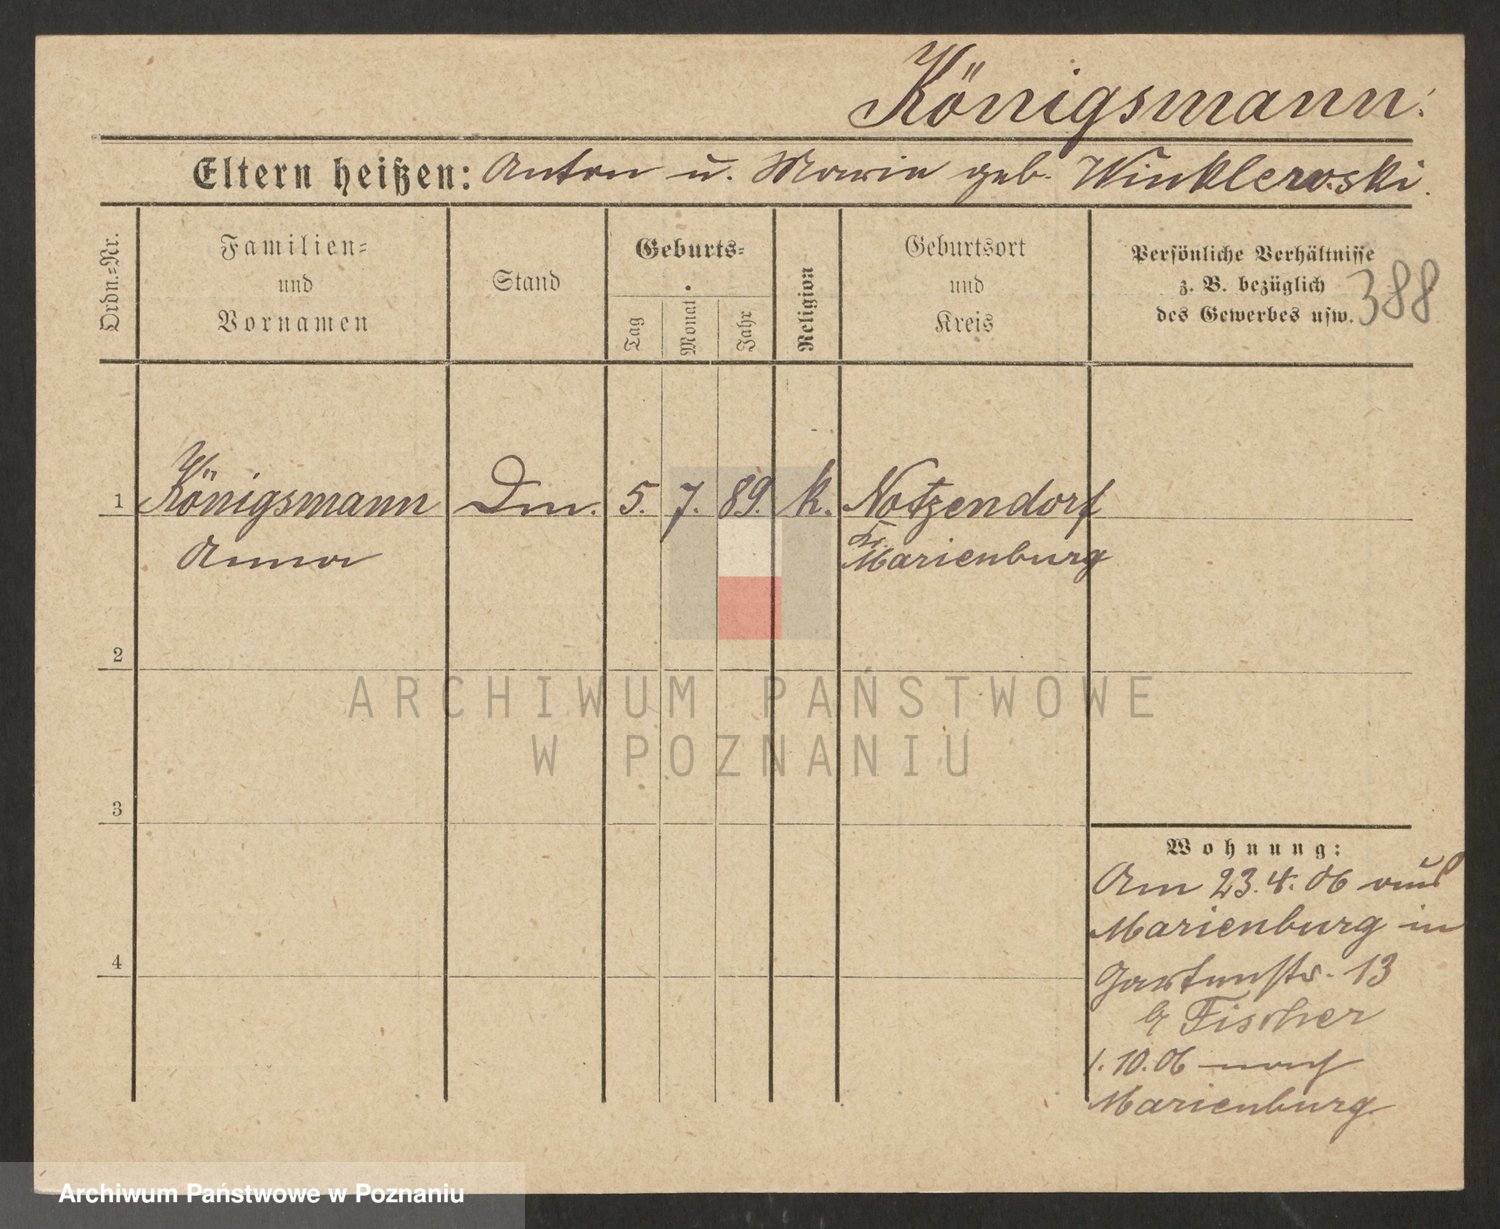 Königsmann.
Eltern heißen: Anton u. Maria geb. Winklewski.
Ordn.=Nr.
Familien=
und
Vornamen
Stand
Geburts=
Tag
Monat
Jahr
Religion
Geburtsort
und
Kreis
Persönliche Verhältnisse
z. B. bezüglich
des Gewerbes usw.
388
1 Königsmann Dm. 5. 7. 89. k. Notzendorf
Anna Kr. Marienburg
2
ARCHIWUM PAŃSTWOWE
W POZNANIU
3
Wohnung:
Am 23.4.06 aus
Marienburg in
4
Gartenstr. 13
b/ Fischer
1.10.06 nach
Marienburg
Archiwum Państwowe w Poznaniu